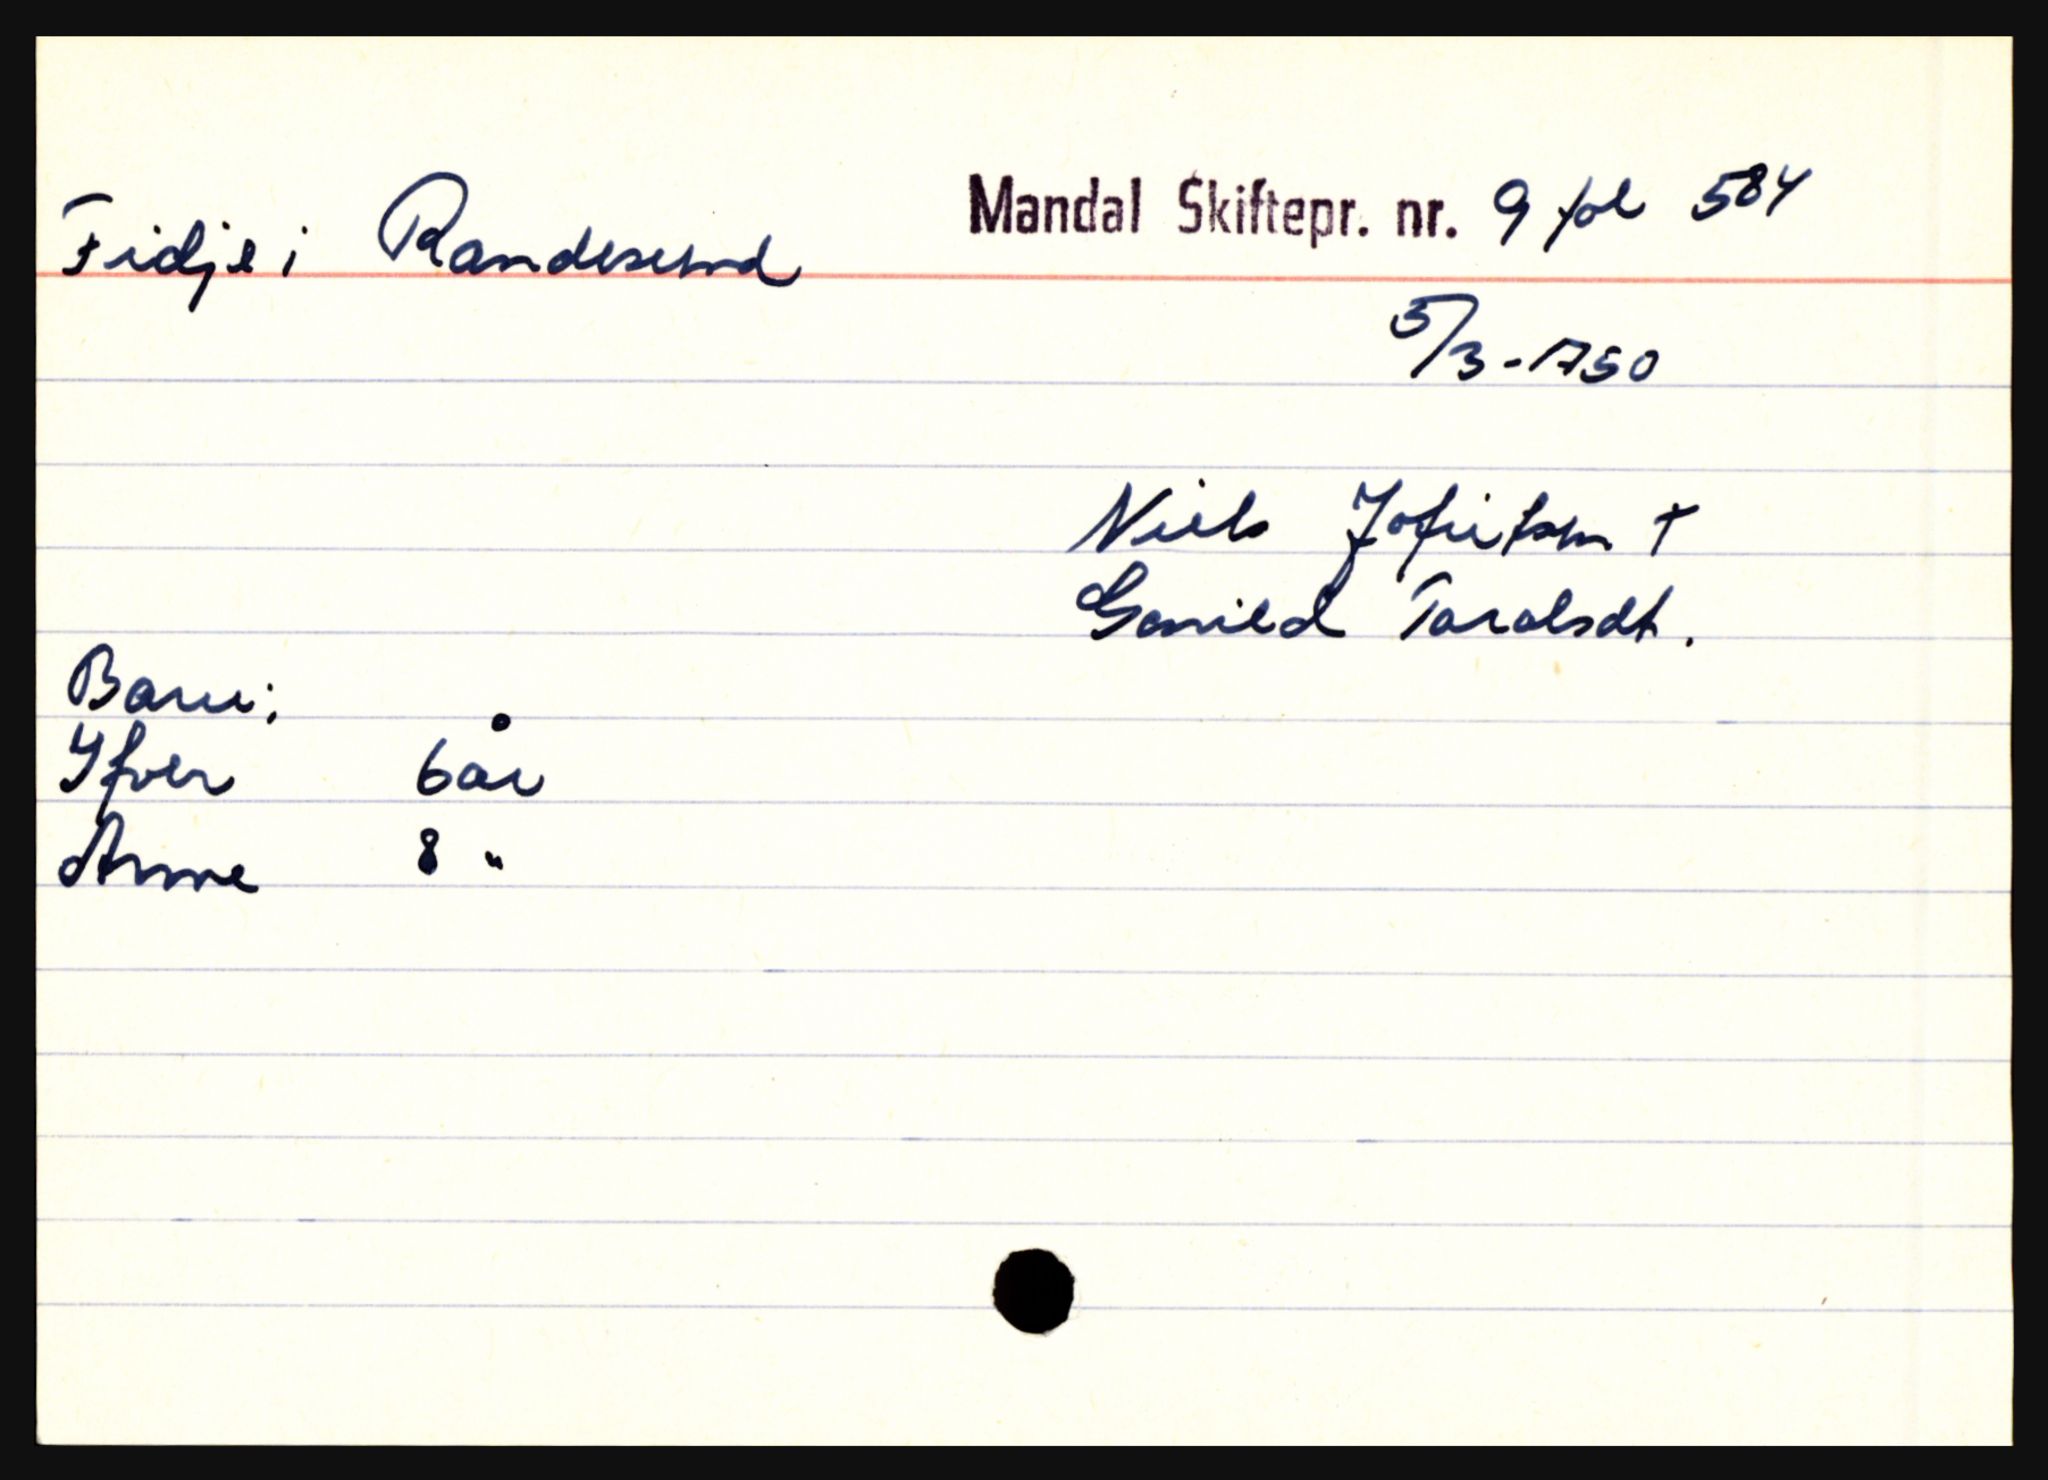 Fidje i Randesund
Mandal Skiftepr. nr. 9 fol 584
5/3-1750
Niels Jofritsen †
Gonild Taralsdt.
Barn:
Yfver 6 år
Anne 8 "